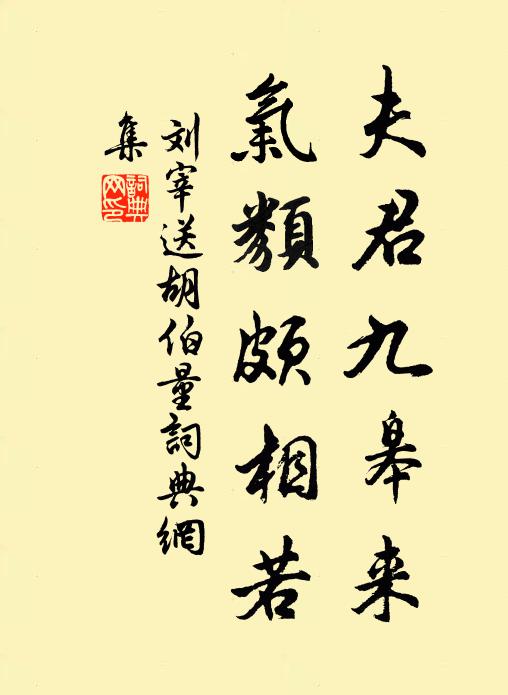 夫君九皋来
氣類頗相若
刘宰送胡伯量詞典網
集
詞典网印